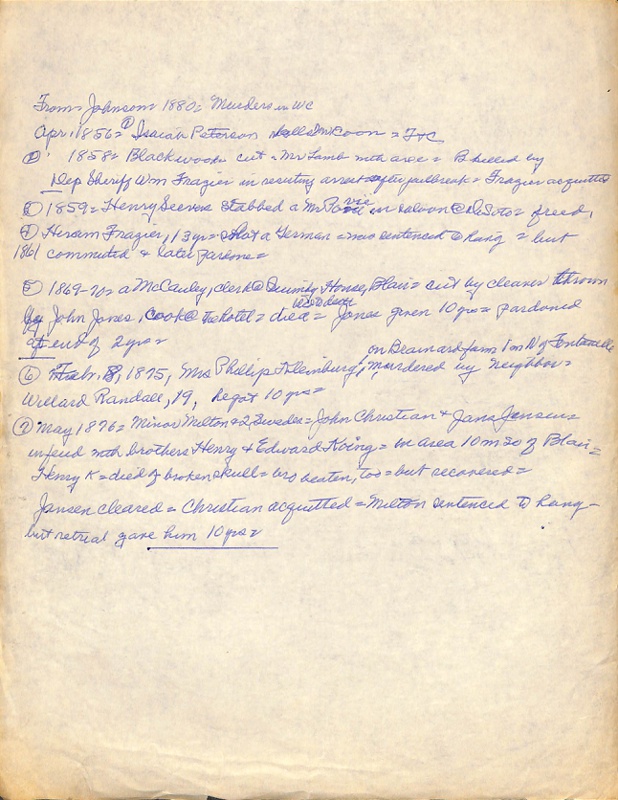 From Johnson 1880= Murders in WC
Apr. 1856= ① Isaiah Peterson kills Coon = T+C
② 1858= Blackwook cut = Mr Lamb with axe = B killed by
Dep Sheriff Wm Frazier in resisting arrest after jailbreak = Frazier acquitted
③ 1859= Henry Seevers stabbed a Mr in saloon @ DeSoto = freed,
④ Hiram Frazier, 13 yrs = shot a German = was sentenced @ hang = but
1861 commuted & later pardone=
⑤ 1869-70= a McCauley, clerk @ House, Blair = cut by cleaver thrown
by John Jones, cook @ the hotel = died = Jones given 10 yrs = pardoned
at end of 2 yrs=
on Brainard farm 1 m N of Fontanelle
⑥ Feb. 8, 1875, Mrs Phillip murdered by neighbor=
Willard Randall, 19, he got 10 yrs=
⑦ May 1876= Minor Milton + 2 Swedes = John Christian & Jans Jensen=
in feud with brothers Henry & Edward King = in area 10 m so of Blair=
Henry K = died of broken skull = bro beaten, too = but recovered=
Jansen cleared = Christian acquitted = Milton sentenced to hang-
but retrial gave him 10 yrs=